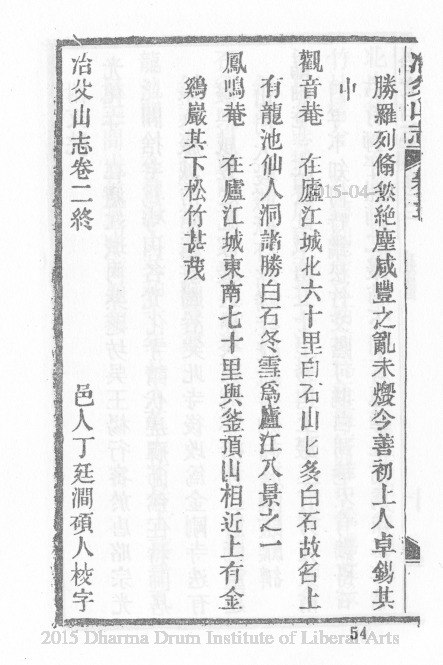 勝羅列翛然絶塵咸豐之亂未燬今善初上人卓錫其
中
觀音菴 在廬江城北六十里白石山山多白石故名上
有龍池仙人洞諸勝白石冬雪爲廬江八景之一
鳳鳴菴 在廬江城東南七十里與釜頂山相近上有金
鷄巖其下松竹甚茂
冶父山志卷二終 邑人丁廷澗碩人校字
54
2015 Dharma Drum Institute of Liberal Arts